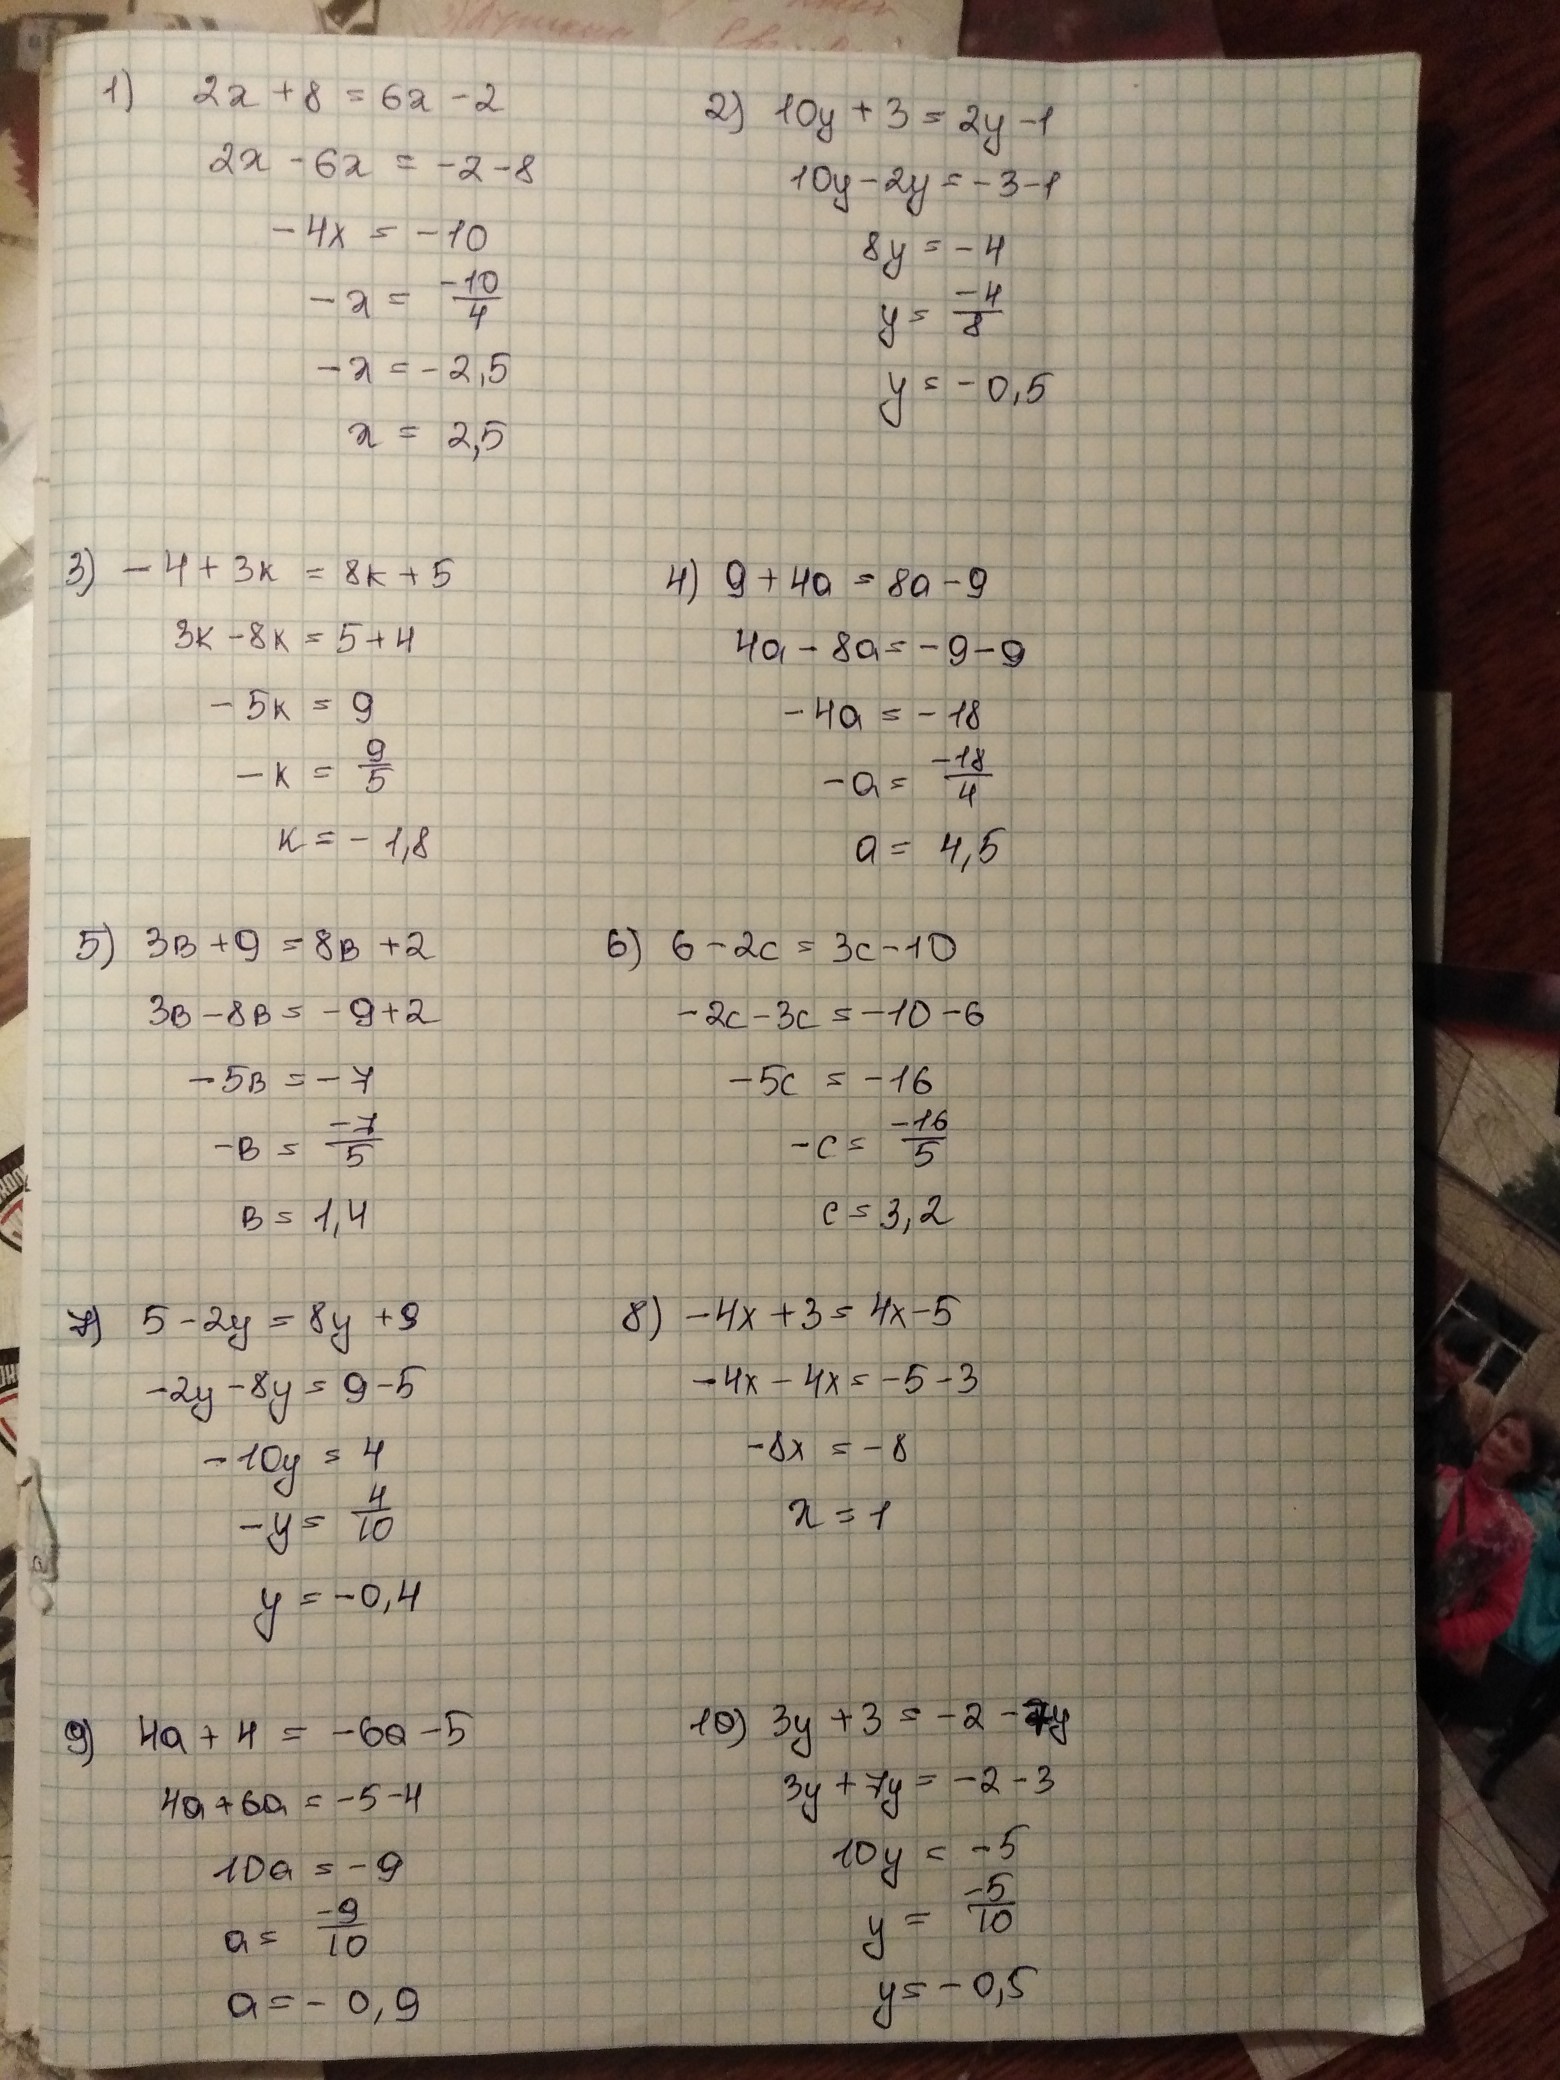 1) 2x + 8 = 6x - 2
2x - 6x = -2 - 8
-4x = -10
-x = -10/4
-x = -2,5
x = 2,5
2) 10y + 3 = 2y - 1
10y - 2y = -3 - 1
8y = -4
y = -4/8
y = -0,5
3) -4 + 3к = 8к + 5
3к - 8к = 5 + 4
-5к = 9
-к = 9/5
к = -1,8
4) 9 + 4a = 8a - 9
4a - 8a = -9 - 9
-4a = -18
-a = -18/4
a = 4,5
5) 3в + 9 = 8в + 2
3в - 8в = -9 + 2
-5в = -7
-в = -7/5
в = 1,4
6) 6 - 2c = 3c - 10
-2c - 3c = -10 - 6
-5c = -16
-c = -16/5
c = 3,2
7) 5 - 2y = 8y + 9
-2y - 8y = 9 - 5
-10y = 4
-y = 4/10
y = -0,4
8) -4x + 3 = 4x - 5
-4x - 4x = -5 - 3
-8x = -8
x = 1
9) 4a + 4 = -6a - 5
4a + 6a = -5 - 4
10a = -9
a = -9/10
a = -0,9
10) 3y + 3 = -2 - 7y
3y + 7y = -2 - 3
10y = -5
y = -5/10
y = -0,5